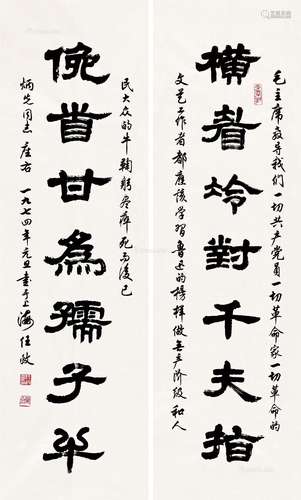 毛主席教导我们一切共产党员一切革命家一切革命的
橫眉冷對千夫指
文艺工作者都應該学習鲁迅的榜样做无产阶级和人
民大众的牛鞠躬尽瘁死而後已
俛首甘為孺子牛
炳先同志座右 一九七四年元旦书于上海任政